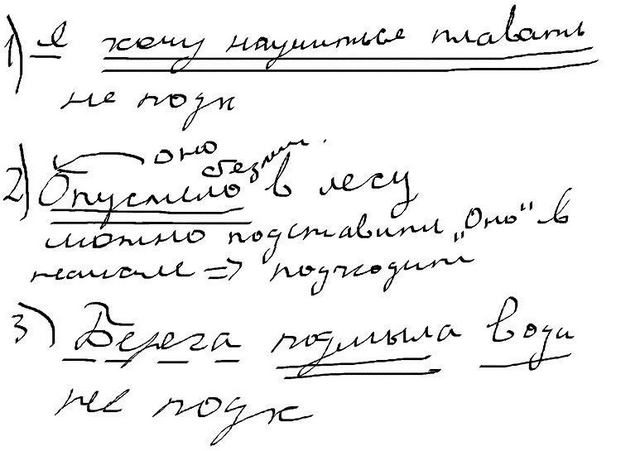 1) Я хочу научиться плавать
не подх
оно безлич.
2) Опустело в лесу
можно подставить "Оно" в
начале => подходит
3) Берега подмыла вода
не подх